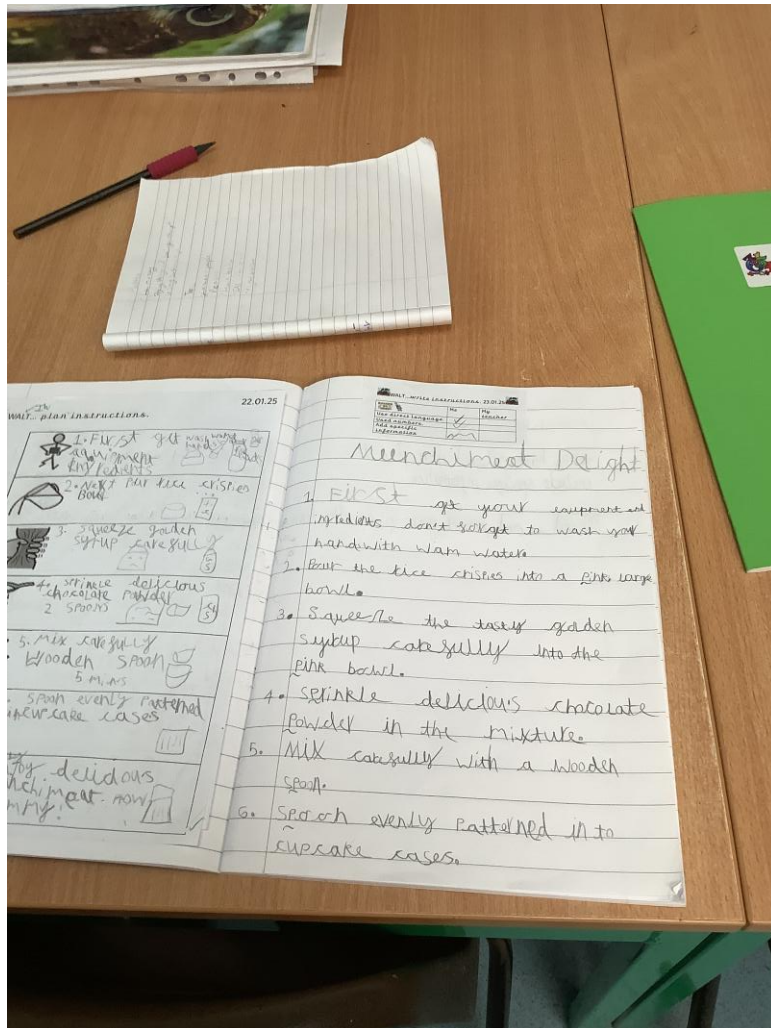 22.01.25
WALT... plan instructions.
1. First get
equipment
ingredients
2. Next Pur rice crispies
Bowl
3. squeeze golden
syrup carefully
4. sprinkle delicious
chocolate powder
2 spoons
5. Mix carefully
Wooden spoon
5 mins
spoon evenly patterned
cupcake cases
delidous
now
WALT...write instructions. 22.01.25
Me
My teacher
Use direct language
Used numbers
Add specific
information
Meunchimeot Delight
1. First get your equipment and
ingredients don't forget to wash your
hand with wam water.
2. Pour the rice crispies into a pink large
bowl.
3. Squeeze the tasty golden
syrup carefully into the
pink bowl.
4. Sprinkle delicious chocolate
powder in the mixture.
5. Mix carefully with a wooden
spoon.
6. Spooon evenly patterned in to
cupcake cases.